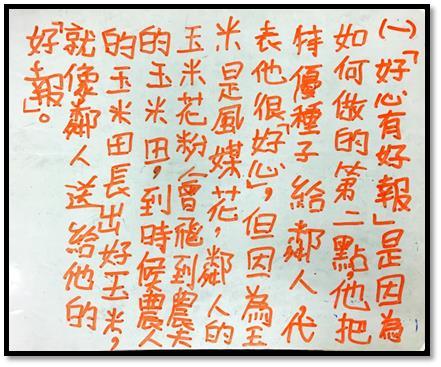 (一)「好心有好報」是因為
如何做的第二點他把
特優種子給鄰人代
表他很「好心」,但因為玉
米是風媒花,鄰人的
玉米花粉會飛到農夫
的玉米田,到時候農人
的玉米田長出好玉米,
就像鄰人送給他的
「好報」。